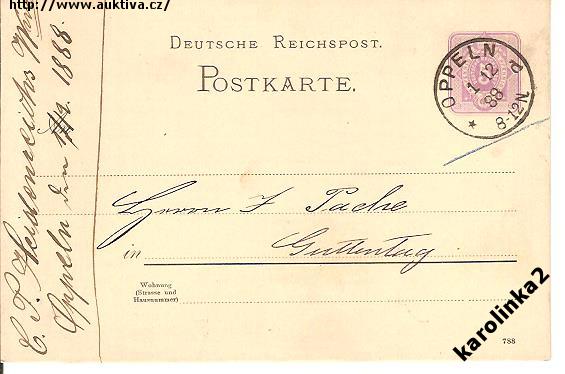 http://www.auktiva.cz/
DEUTSCHE REICHSPOST.
POSTKARTE.
OPPELN d
1 12
88
8-12N.
*
Herrn J Pache
in Guttentag
Wohnung
(Strasse und
Hausnummer)
788
Oppeln den 1888
karolinka2